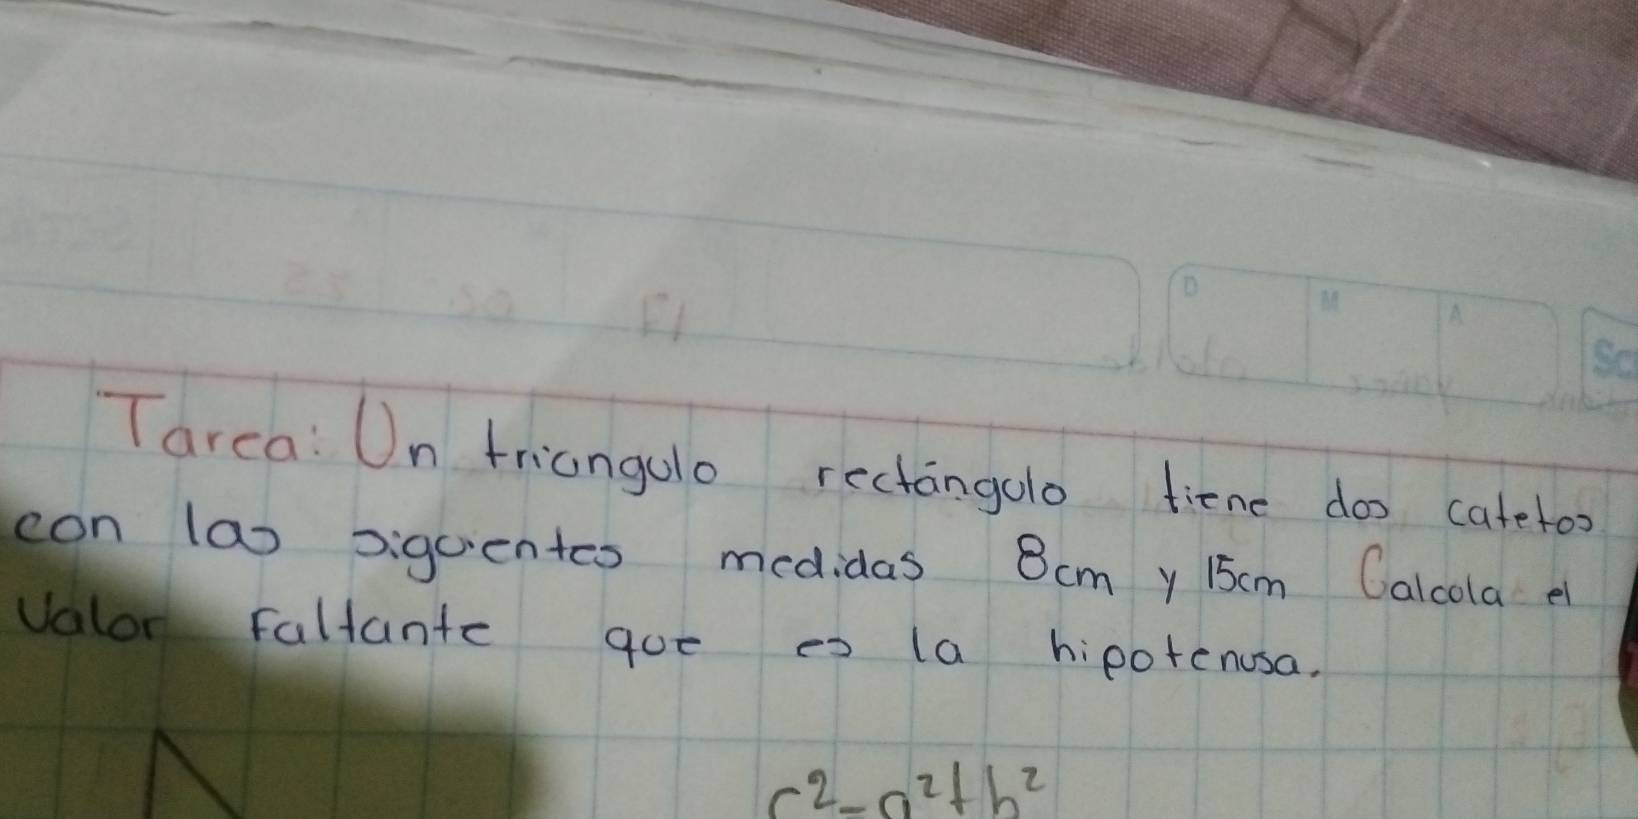 D M A
Tarea: Un triangulo rectángulo tiene dos catetos
con las siguientes medidas 8cm y 15cm Calcola el
Valor Faltante que es la hipotenusa.
c²=a²+b²